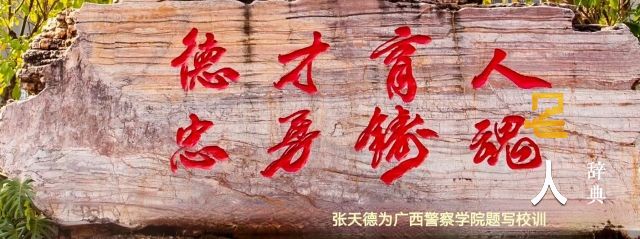 德才育人
忠勇铸魂
名人
辞典
张天德为广西警察学院题写校训